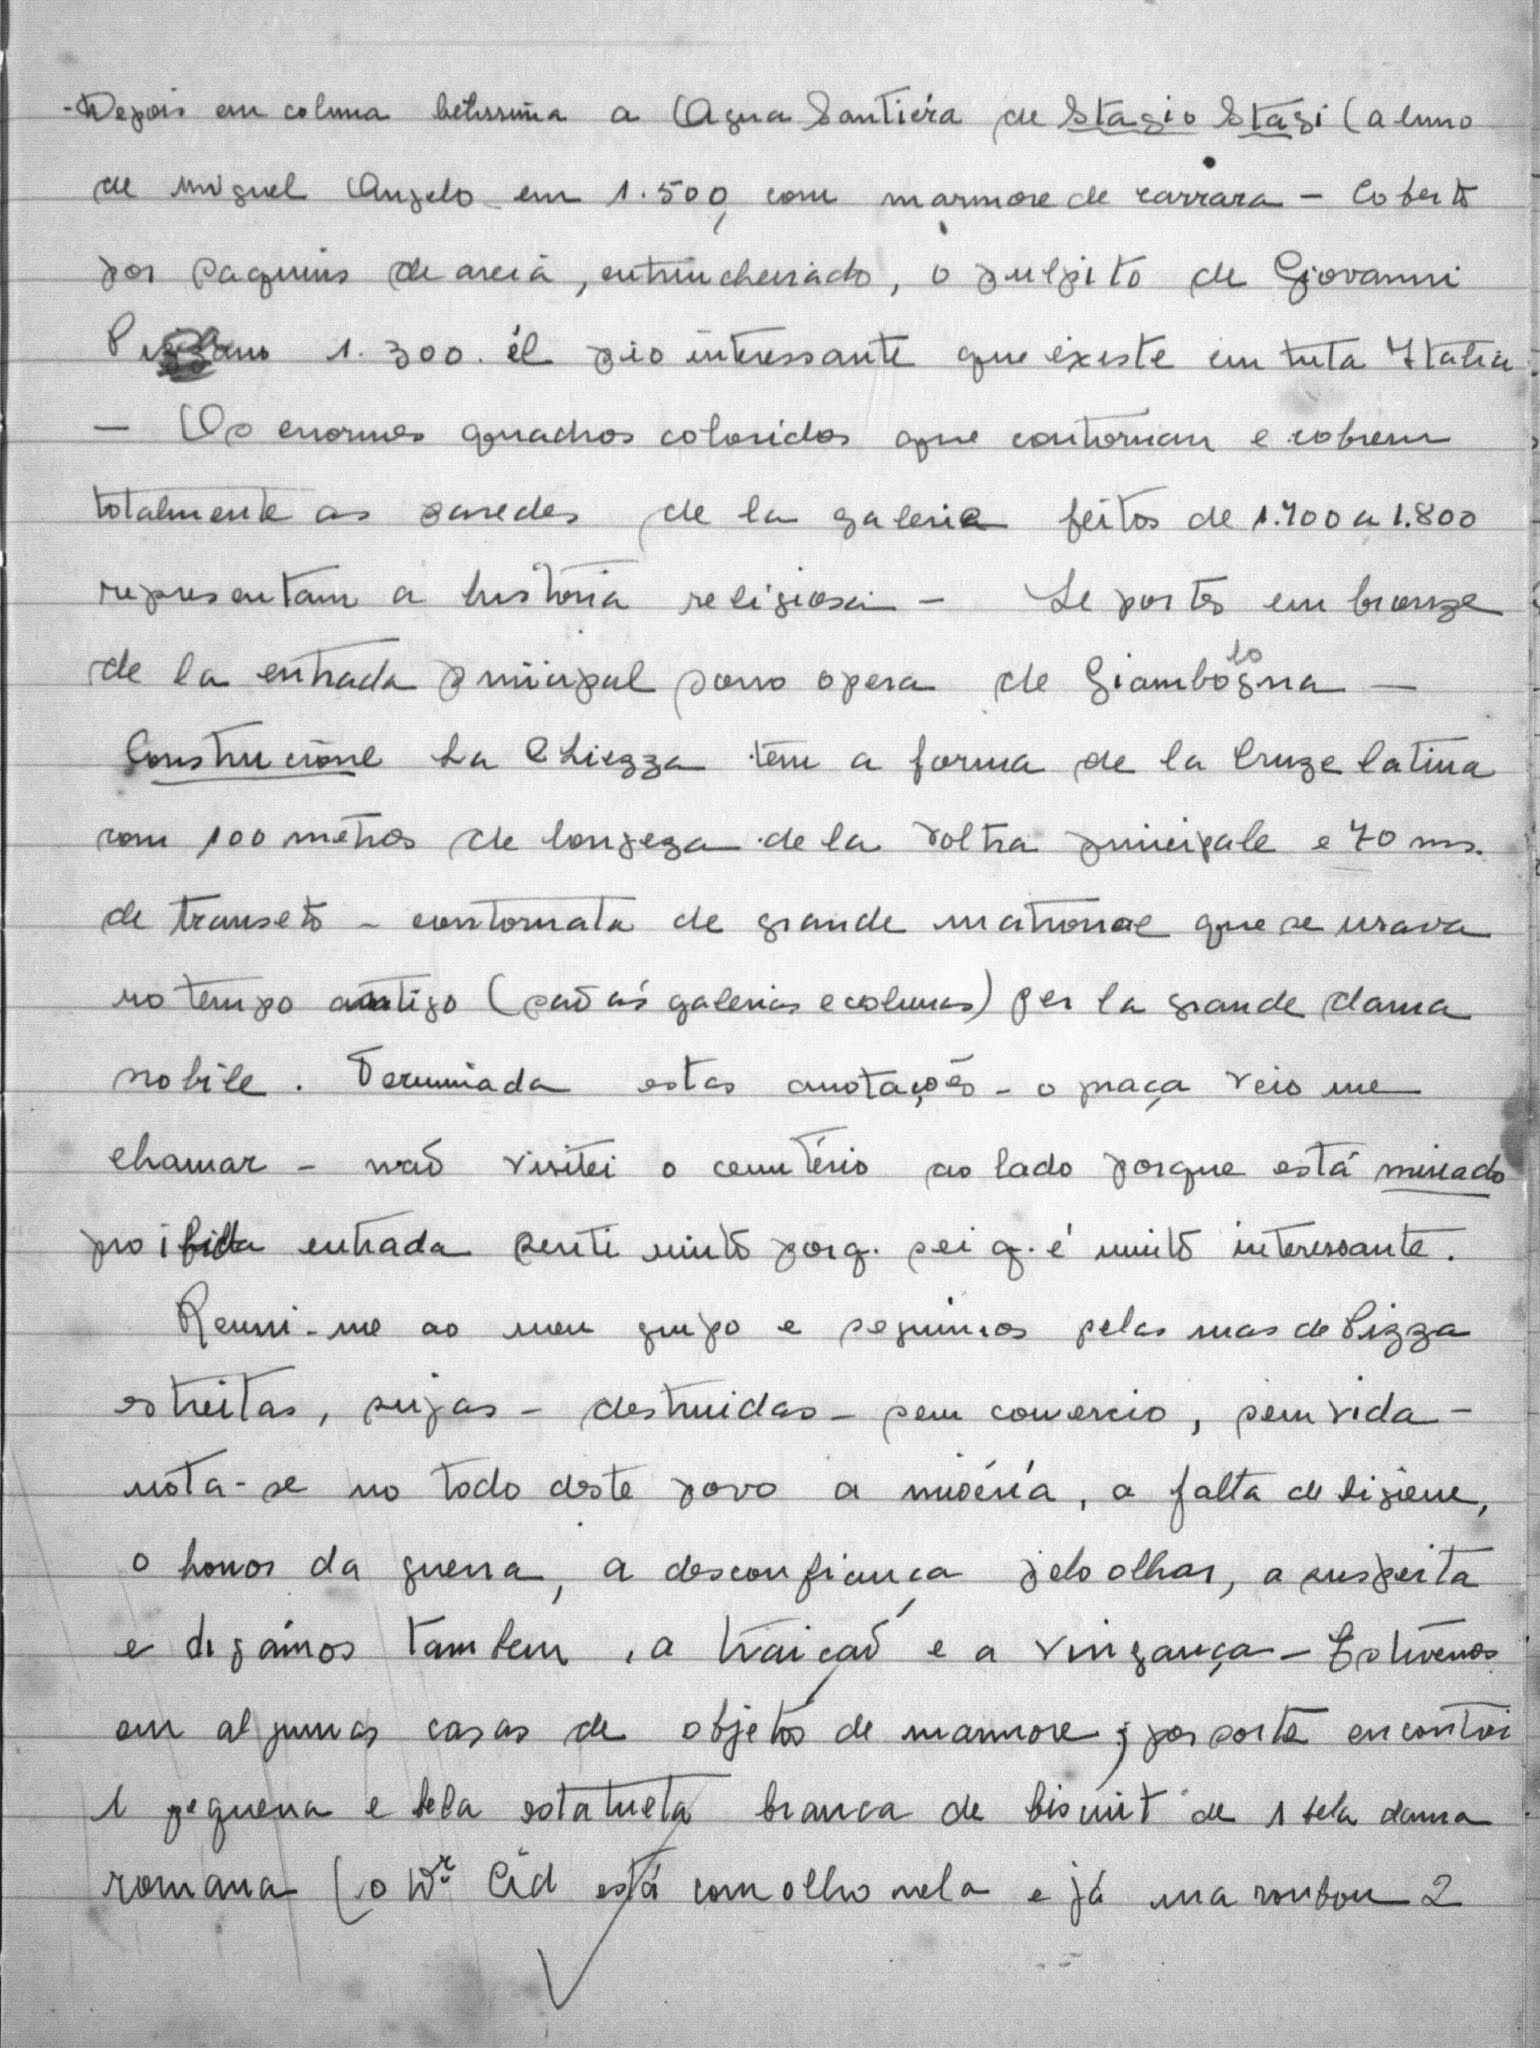 - Depois em coluna belissima a Agua Santiéra de Stagio Stagi (aluno
de Miguel Angelo em 1.500, com marmore de carrara - Coberto
por saquinis de areia, entrincheirado, o pulpito de Giovanni
Pizzano 1.300. él pio interessante que existe em tuta Italia
- Os enormes quadros coloridos que contornam e cobrem
totalmente as paredes de la galeria feitos de 1.700 a 1.800
representam a história religiosa - Le portas em bronze
de la entrada principal sono opera de Giambologna -
Construcione La Chiezza tem a forma de la Cruze latina
com 100 metros de longeza de la voltra principale e 70 ms.
de transeto - contornata de grande matronae que se usava
no tempo antigo (são ás galerias e colunas) per la grande dama
nobile. Terminada estas anotações - o praça veio me
chamar - não visitei o cemitério ao lado porque está minado
proibida entrada senti muito porq. sei q. é muito interessante.
Reuni-me ao meu grupo e seguimos pelas ruas de Pizza
estreitas, sujas - destruidas - sem comercio, sem vida -
nóta-se no todo deste povo a miséria, a falta de higiene,
o horror da guerra, a desconfiança pelo olhar, a suspeita
e digámos tambem, a traição e a vingança - Estivemos
em algumas casas de objetos de marmore; por sorte encontrei
1 pequena e bela estatueta branca de biscuit de 1 bela dama
romana (o Dr. Cid está com olho nela e já me roubou 2